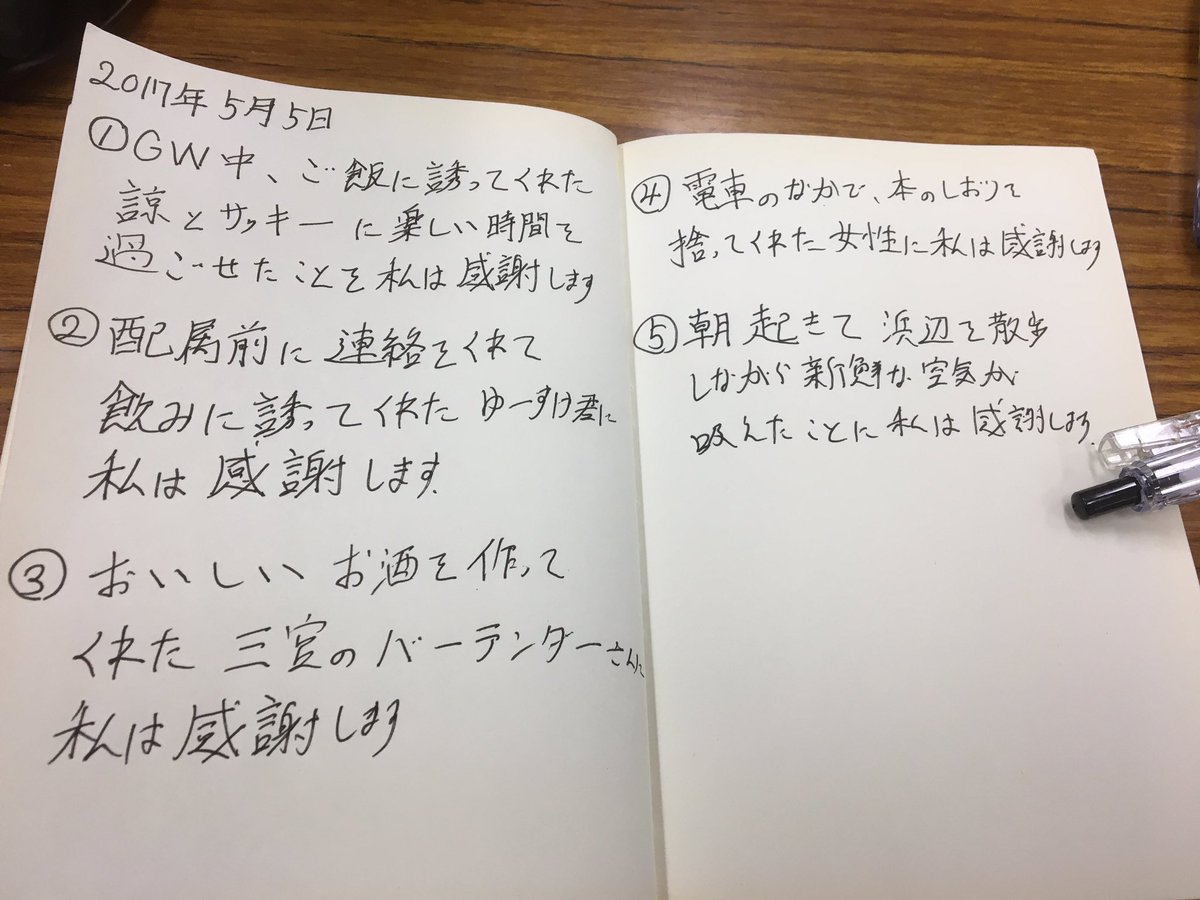 2017年5月5日
①GW中、ご飯に誘ってくれた
諒とサッキーに楽しい時間を
過ごせたことを私は感謝します
②配属前に連絡をくれて
飲みに誘ってくれたゆーすけ君に
私は感謝します.
③おいしいお酒を作って
くれた三宮のバーテンダーさんに
私は感謝します
④電車のなかで、本のしおりを
捨ってくれた女性に私は感謝します
⑤朝起きて浜辺を散歩
しながら新鮮な空気が
吸えたことに私は感謝します.